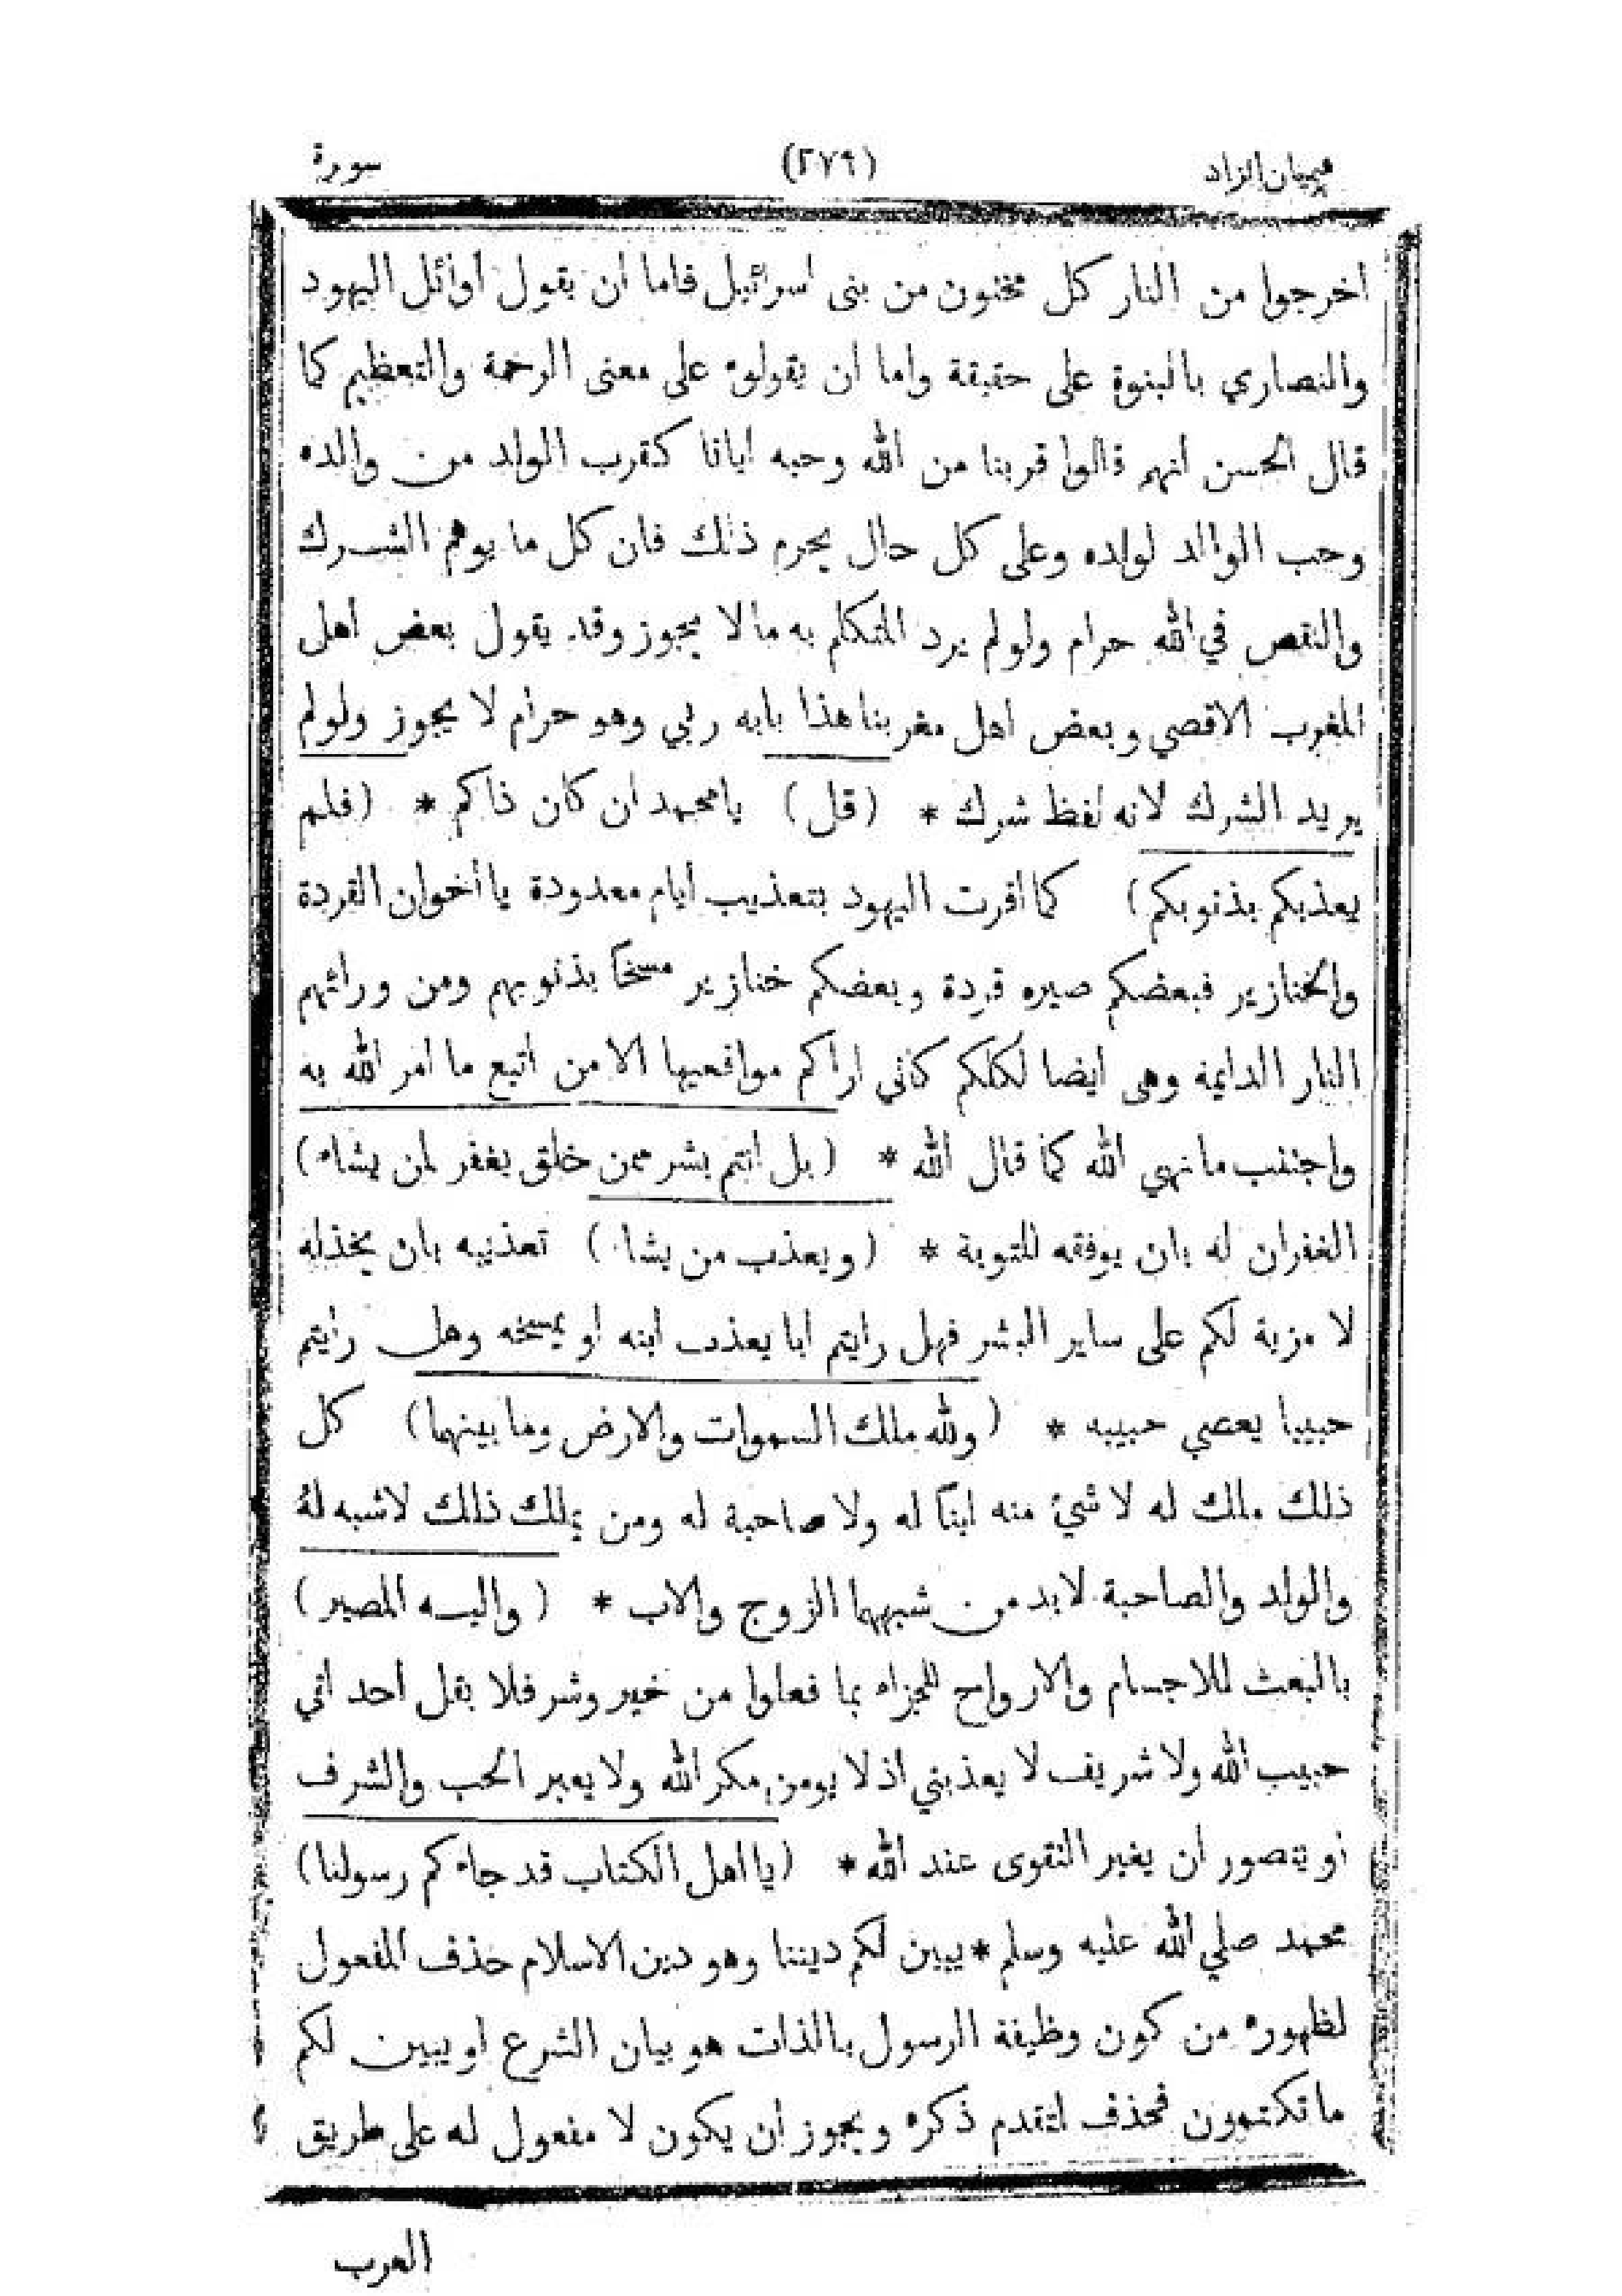 هيميان الزاد (٢٧٩) سورة
اخرجوا من النار كل مختون من بنى اسرائيل فاما ان يقول اوائل اليهود
والنصاري بالبنوة على حقيقة واما ان يقولوه على معنى الرحمة والتعظيم كما
قال الحسن انهم قالوا قربنا من الله وحبه ايانا كقرب الولد من والده
وحب الوالد لولده وعلى كل حال يحرم ذلك فان كل ما يوهم الشرك
والنقص في الله حرام ولولم يرد المتكلم به مالا يجوز وقد يقول بعض أهل
المغرب الاقصي وبعض اهل مغربنا هذا بابه ربي وهو حرام لا يجوز ولولم
يريد الشرك لانه لفظ شرك * (قل) يا محمد ان كان ذاكم * (فلم
يعذبكم بذنوبكم) كما أقرت اليهود بتعذيب ايام معدودة يا أخوان القردة
والخنازير فبعضكم صيره قردة وبعضكم خنازير مسخاً بذنوبهم ومن ورائهم
النار الدايمة وهى ايضا لكلكم كأني اراكم مواقعيها الا من اتبع ما امر الله به
واجتنب ما نهي الله كما قال الله * (بل انتم بشر ممن خلق يغفر لمن يشاء)
الغفران له بان يوفقه للتوبة * (ويعذب من يشاء) تعذيبه بان يخذله
لا مزية لكم على ساير البشر فهل رايتم ابا يعذب ابنه او يمسخه وهل رايتم
حبيبا يعصي حبيبه * (ولله ملك السموات والارض وما بينهما) كل
ذلك ملك له لا شيء منه ابناً له ولا صاحبة له ومن يملك ذلك لاشبه له
والولد والصاحبة لابد من شبههما الزوج والاب * (واليه المصير)
بالبعث للاجسام والارواح للجزاء بما فعلوا من خير وشر فلا يقل أحد اني
حبيب الله ولا شريف لا يعذبني اذ لا يومن مكر الله ولا يعبر الحب والشرف
أو يتصور ان يغير التقوى عند الله * (يا اهل الكتاب قد جاءكم رسولنا)
محمد صلي الله عليه وسلم * يبين لكم ديننا وهو دين الاسلام حذف المفعول
لظهوره من كون وظيفة الرسول بالذات هو بيان الشرع او يبين لكم
ما تكتمون فحذف لتقدم ذكره ويجوز أن يكون لا مفعول له على طريق
العرب